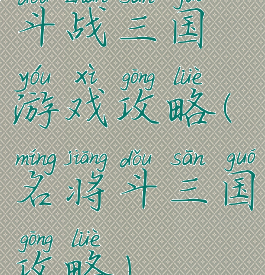 dòu zhàn sān guó
斗战三国
yóu xì gōng lüè
游戏攻略(
míng jiāng dǒu sān guó
名将斗三国
gōng lüè
攻略)